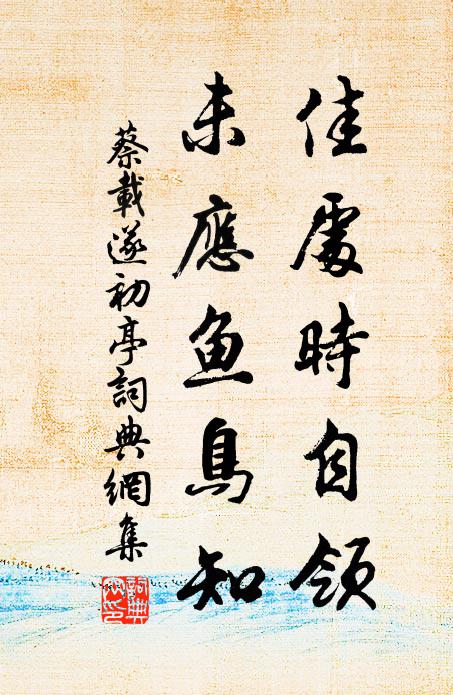 佳處時自領
未應魚鳥知
蔡載遂初亭詞典網集